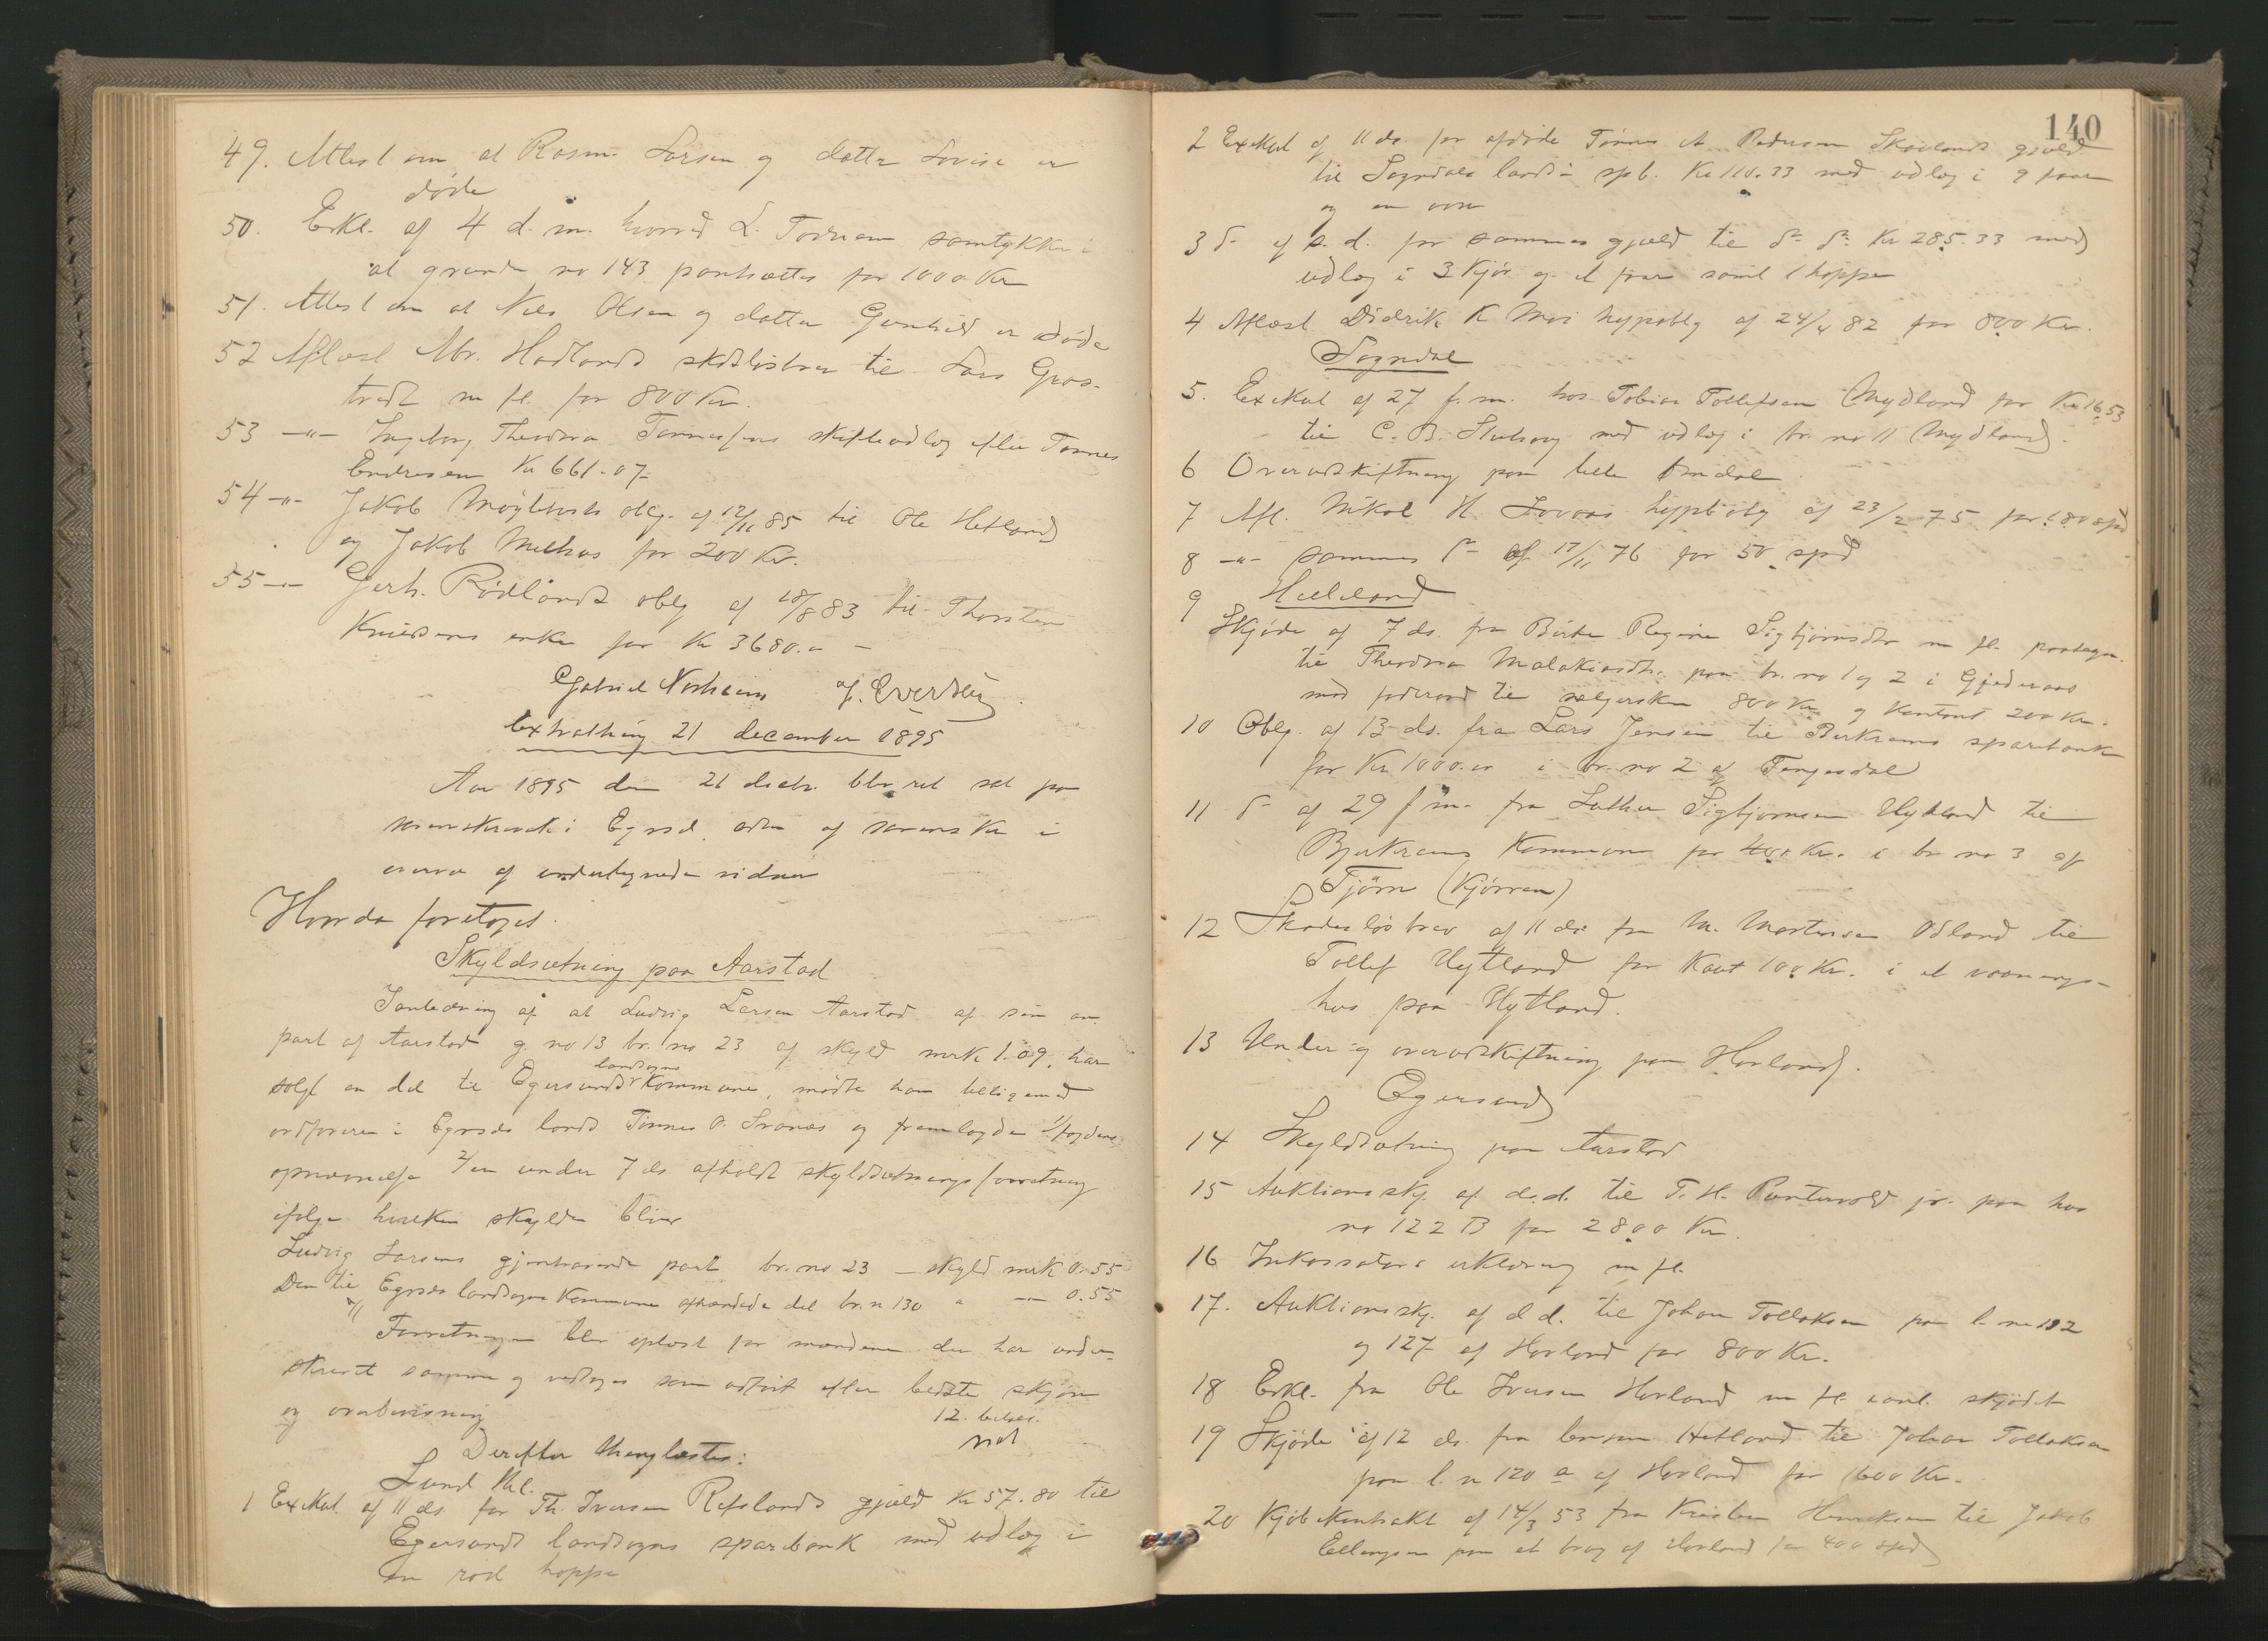 49. Attest om at Rasm. Larsen og datter Lovise er
døde
50. Erkl. af 4 d. m. hvorved L. samtykker i
at grunde no 143 pantsættes for 1000 Kr
51. Attest om at Nils Olsen og datter Gunhild er døde
52 Aflæst Mr. Hadlands skdsløsbrev til Lars Graa-
m fl. for 800 Kr.
53 -"- Ingeborg Theodora Tønnesens skifteudlæg efter Tønnes
Endresen Kr 661.07
54 -"- Jakob obl. af 12/11 85 til Ole Hetland
og Jakob for 200 Kr.
55 -"- Gerh. Rødlands oblg af 18/8 83 til Thorsten
Knudsens enke for Kr 3680.
Gabriel Nordheim
Extrathing 21 december 1895
Aar 1895 den 21 decbr. blev ret sat paa
i Egrsd. af sorenskr i
overvær af undertegnede vidner
Hvorda foretoges.
Skyldsætning paa Aarstad
I anledning af at Ludvig Larsen Aarstad af sin an-
part af Aarstad g. no 13 br. no 23 af skyld mrk 1.09. har
landsogns
solgt en del til Egersunds Kommune, mødte han tilligemed
ordføreren i Egrsds lands Tønnes O. Svanes og fremlagde 1/ fogdens
opnævnelse 2/ en under 7 ds. afholdt skyldsætningsforretning
ifølge hvilken skylden bliver
Ludvig Larsens gjenhavende part br. no 23 - skyld mrk 0.55
Den til Egrsds landsogns Kommune afhændede del br. n 130 " -"- 0.55
Forretningen blev oplæst for mændene der har under-
skrevet samme og vedtoges som udført efter bedste skjøn
og overbevisning
12.
Derefter thinglæstes:
Lund thl.
1 Exekut. af 11 ds. for Th. Iversen Refslands gjæld Kr 57.80 til
Egersunds landsogns sparebank med udlæg i
en rød hoppe
140
2 Exekut af 11 ds. for afdøde Tønnes A. Pedersen Skaalands gjæld
til Sogndals lands spb. Kr 110.33 med udlæg i 9 faar
og en
3 do af s. d. for sammes gjæld til do do Kr 285.33 med
udlæg i 3 kjør og et faar samt 1 hoppe
4 Aflæst Didrik K Moi hypoblg af 24/4 82 for 800 Kr.
Sogndal
5. Exekut af 27 f. m. hos Tobias Tollefsen Mydland for Kr 16.53
til C. B. med udlæg i br. no 11 Mydland.
6 Overudskiftning paa lille Amdal
7 Afl. Mikal H. Lovaas hypobl af 23/2 75 for 180 spd
8 -"- sammes do af 17/11 76 for 50 spd
Helleland
9 Skjøde af 7 ds. fra Birte Regine Sigbjørnsdtr m fl.
til Theodora Malakiasdtr. paa br. no 1 og 2 i Gjedreaas
mod foderaad til sælgersken 800 Kr og kontant 200 Kr.
10 Oblg. af 13 ds. fra Lars Jensen til Birkrems sparebank
for Kr 1000.00 i br. no 2 af Tengesdal
11 do af 29 f m. fra Luther Sigbjørnsen Hytland til
Bjerkrems Kommune for 400 Kr. i br no 3 af
Tjørn (Kjørren)
12 Skadesløsbrev af 11 ds. fra M. Mortensen Odland til
Tollef Hytland for Kaut 100 Kr. i et vaanings-
hus paa Hytland.
13 Under og overudskiftning paa Hovland.
Egersund
14 Skyldsætning paa Aarstad
15 Auktionsskj. af d.d. til T. H. Puntervold jr. paa hus
no 122 B for 2800 Kr.
16 Inkassators erklæring m fl.
17. Auktionsskj. af d d. til Johan Tollaksen paa l. no 192
og 127 af Hovland for 800 Kr.
18 Erkl. fra Ole Iversen Hovland m fl. skjødet
19 Skjøde af 12 ds. fra Hetland til Johan Tollaksen
paa l. n 120 a af Hovland for 1600 Kr.
20 Kjøbekontrakt af 14/3 53 fra Henriksen til Jakob
Ellingsen paa et brug af Hovland for 400 spd